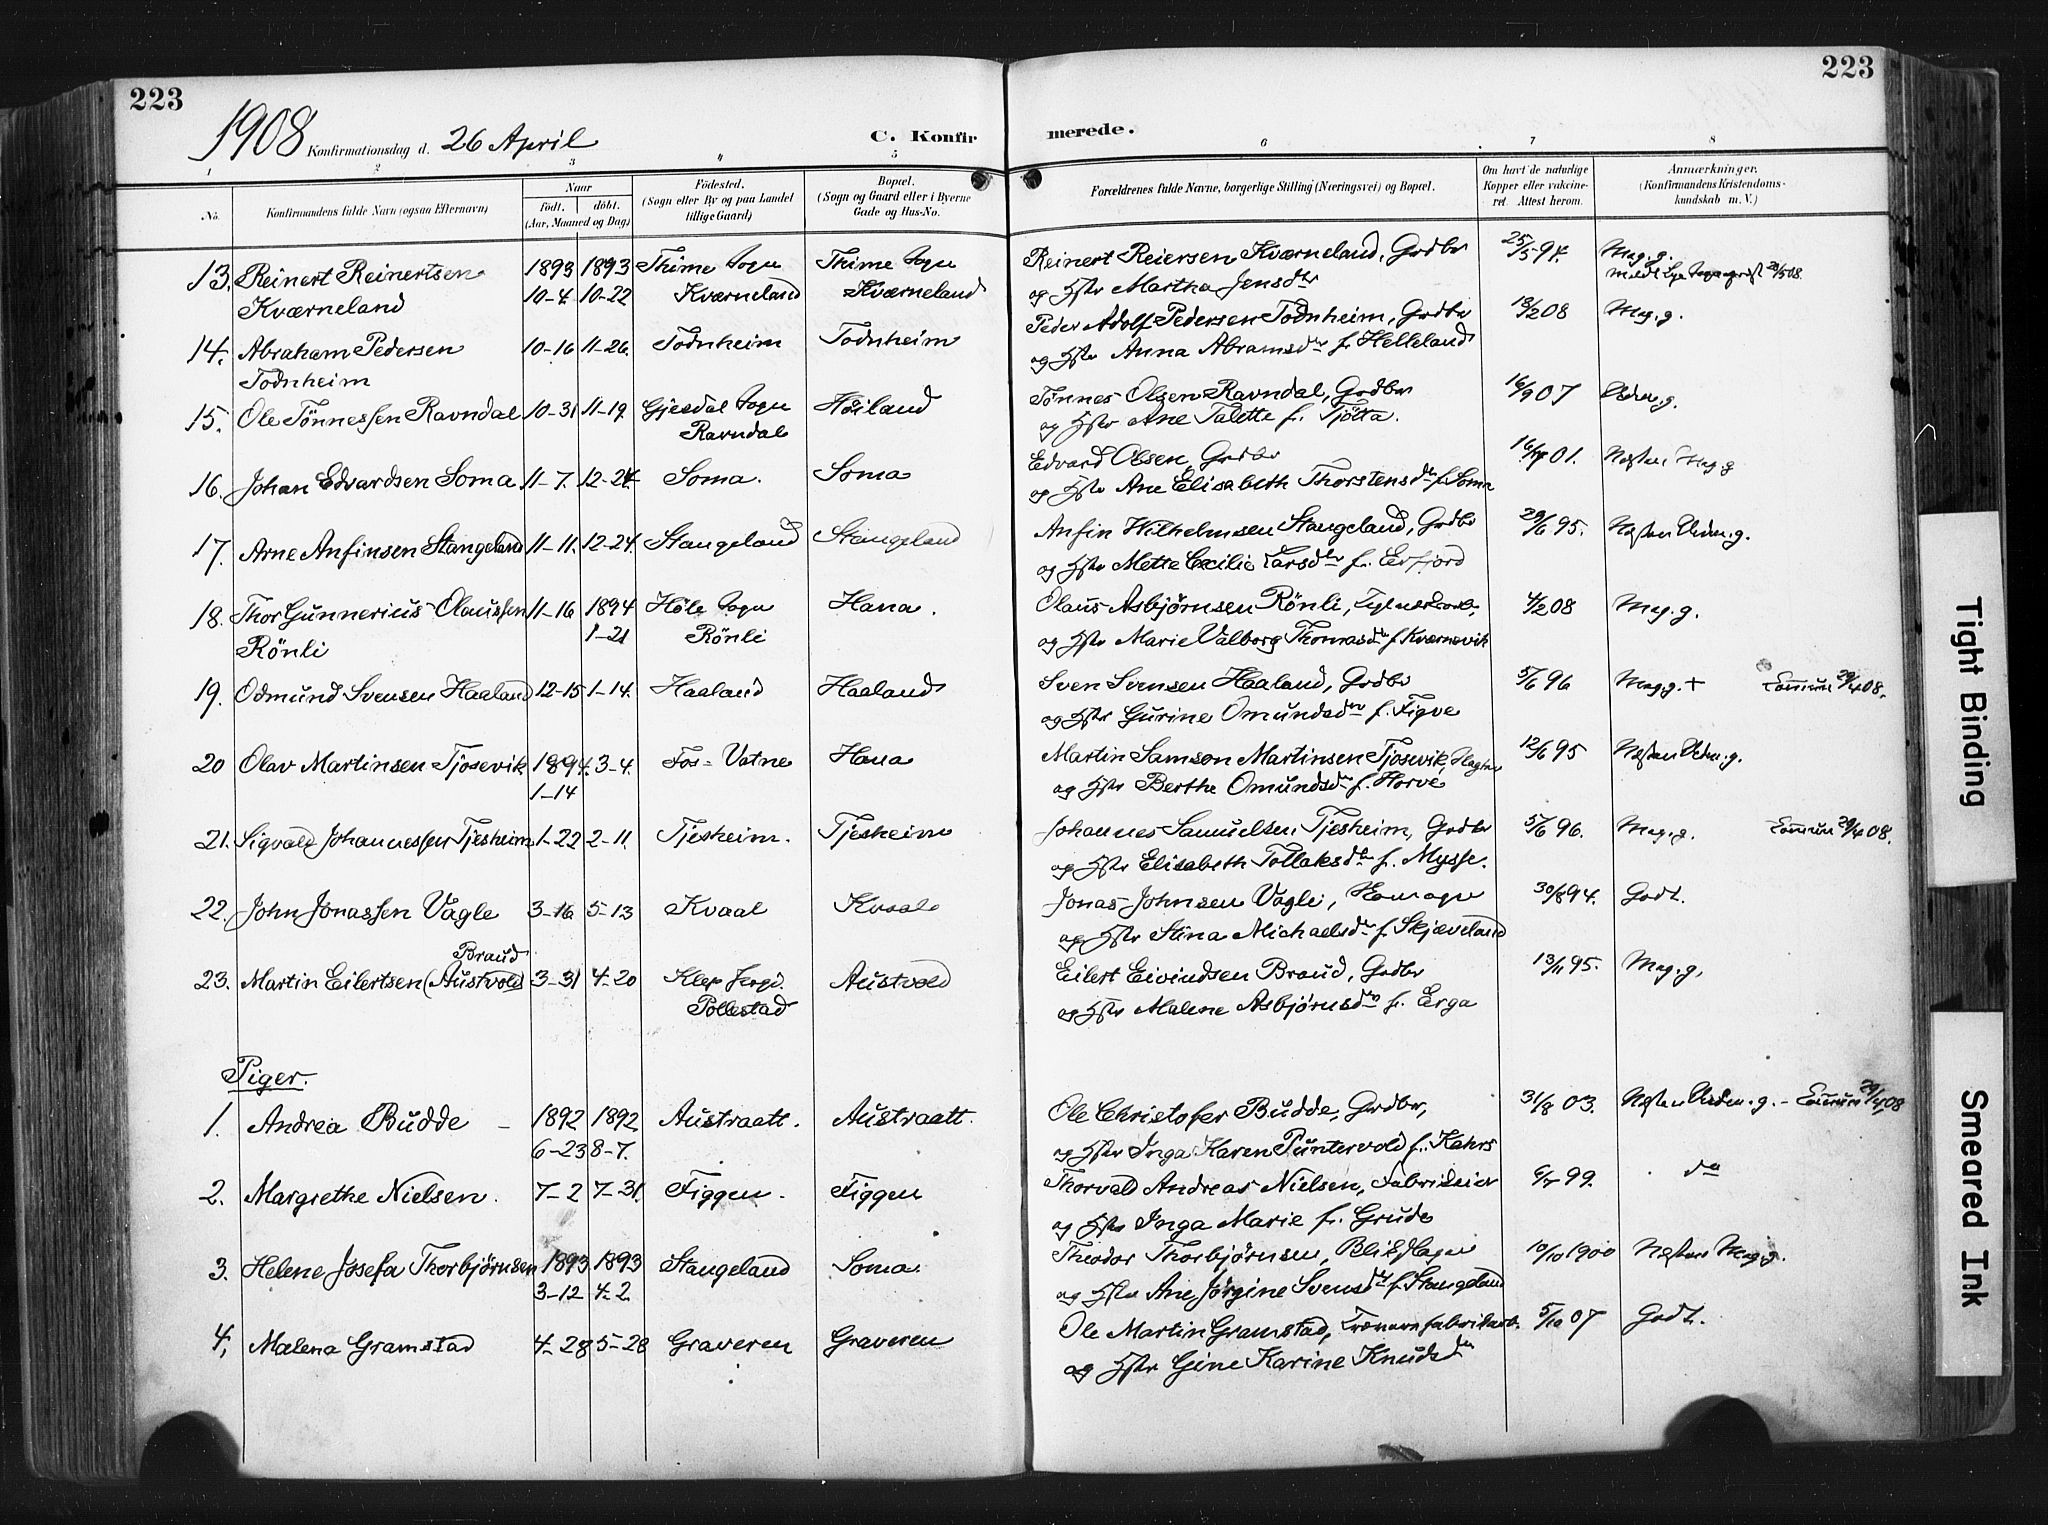 223
223
1908 Konfirmationsdag d. 26 April
C. Konfirmerede.
1 2 3 4 5 6 7 8
No.
Konfirmandens fulde Navn (ogsaa Efternavn)
Naar
født. døbt.
(Aar, Maaned og Dag)
Fødested.
(Sogn eller By og paa Landet
tillige Gaard)
Bopæl.
(Sogn og Gaard eller i Byerne
Gade og Hus-No.
Forældrenes fulde Navne, borgerlige Stilling (Næringsvei) og Bopæl.
Om havt de naturlige
Kopper eller vaccine-
ret. Attest herom.
Anmærkninger.
(Konfirmandens Kristendoms-
kundskab m. V.)
13. Reinert Reinertsen 1893 1893 Thime Sogn Thime Sogn Reinert Reiersen Kværneland, Grdbr 25/5 94. Meg. g.
Kværneland 10-4 10-22 Kværneland Kværneland og Hstr Martha Jensdtr
14. Abraham Pedersen 10-16 11-26. Todnheim Todnheim Peder Adolf Pedersen Todnheim, Grdbr 18/2 08 Meg. g.
Todnheim og Hstr Anna Abramsdtr f. Helleland
15. Ole Tönnessen Ravndal 10-31 11-19. Gjesdal Sogn Höiland Tönnes Olsen Ravndal, Grdbr 16/9 07 Udm. g.
Ravndal og Hstr Ane Talette f. Tjøtta.
16. Johan Edvardsen Soma 11-7. 12-24 Soma. Soma Edvard Olsen, Grdbr 01. Næsten Meg. g
og Hstr Ane Elisabeth Thorstensdtr f. Soma
17. Arne Anfinsen Stangeland 11-11. 12-24. Stangeland Stangeland Anfin Wilhelmsen Stangeland, Grdbr 29/6 95. Næsten Udm. g.
og Hstr Mette Cecilie Larsdtr f. Erfjord
18. Thor Gunnerius Olaussen 11-16 1894 Höle Sogn Hana. Olaus Asbjørnsen Rönli, 4/2 08 Meg. g.
Rönli 1-21 Rönli og Hstr Marie Valborg Thomasdtr f. Kværnevik
19. Odmund Svensen Haaland 12-15 1-14. Haaland Haaland Sven Svensen Haaland, Grdbr 5/6 96 Meg. g. + 29/4 08.
og Hstr Gurine Omundsdtr f. Figve
20 Olav Martinsen Tjosevik 1894. 3-4. Fos-Vatne Hana Martin Samson Martinsen Tjosevik, 12/6 95 Næsten Udm. g.
1-14 og Hstr Berthe Omundsdtr f. Horve
21. Sigvald Johannessen Tjesheim 1-22 2-11. Tjesheim. Tjesheim Johannes Samuelsen Tjesheim, Grdbr 5/6 96. Meg. g. 29/4 08.
og Hstr Elisabeth Tollaksdtr f. Mysse.
22. John Jonassen Vagle 3-16 5-13 Kvaal Kvaal Jonas Johnsen Vagle, 30/8 94. Godt.
og Hstr Stina Michaelsdtr f. Skjæveland
Braud
23. Martin Eilertsen (Austvold) 3-31 4-20 Klep Austvold Eilert Eivindsen Braud, Grdbr 13/11 95. Meg. g,
Pollestad og Hstr Malene Asbjørnsdtr f. Erga
Piger.
1. Andrea Budde 1892 1892 Austraatt. Austraatt. Ole Christofer Budde, Grdbr, 31/8 03. Næsten Udm. g. - 29/4 08
6-23 8-7. og Hstr Inga Karen Puntervold f. Kahrs
2. Margrethe Nielsen. 7-2 7-31. Figgen. Figgen Thorvald Andreas Nielsen, Fabrikeier 99. do
og Hstr Inga Marie f. Grude
3. Helene Josefa Thorbjørnsen 1893 1893 Stangeland Soma. Theodor Thorbjørnsen, 10/10 1900 Næsten Meg. g.
3-12 4-2. og Hstr Ane Jørgine Svensdtr f. Stangeland
4, Malena Gramstad 4-28 5-28 Graveren Graveren Ole Martin Gramstad, 5/10 07 Godt.
og Hstr Gine Karine Knudsdtr
Tight Binding
Smeared Ink